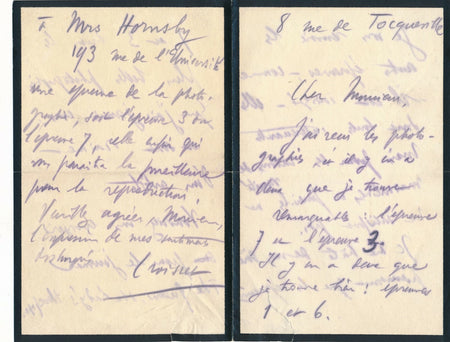 8 rue de Tocqueville
Cher Monsieur,
J'ai reçu les photo-
graphies et il y en a
deux que je trouve
remarquables : l'épreuve
7 et l'épreuve 3.
Il y en a deux que
je trouve bien : épreuves
1 et 6.
à Mrs Hornsby
193 rue de l'Université
une épreuve de la photo-
graphie, soit l'épreuve 3 ou
l'épreuve 7, celle enfin qui
vous paraîtra la meilleure
pour la reproduction.
Veuillez agréer, Monsieur,
l'expression de mes sentiments
distingués
Croisset